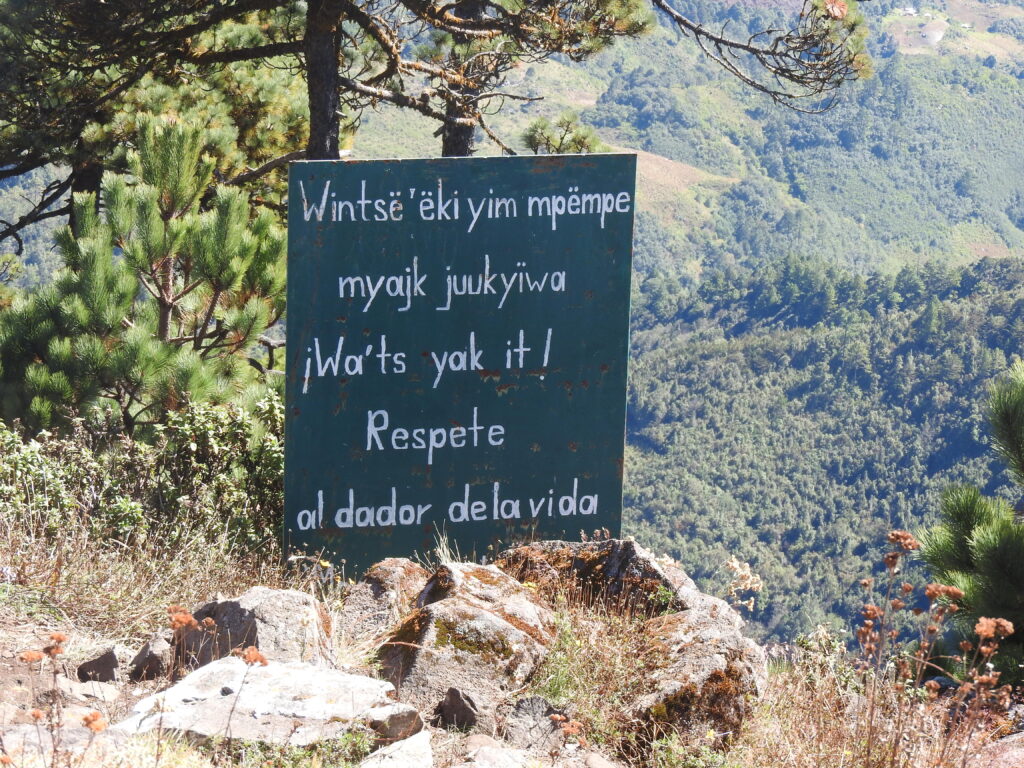 Wintsë'ëki yim mpëmpe
myajk juukyïwa
¡Wa'ts yak it!
Respete
al dador de la vida